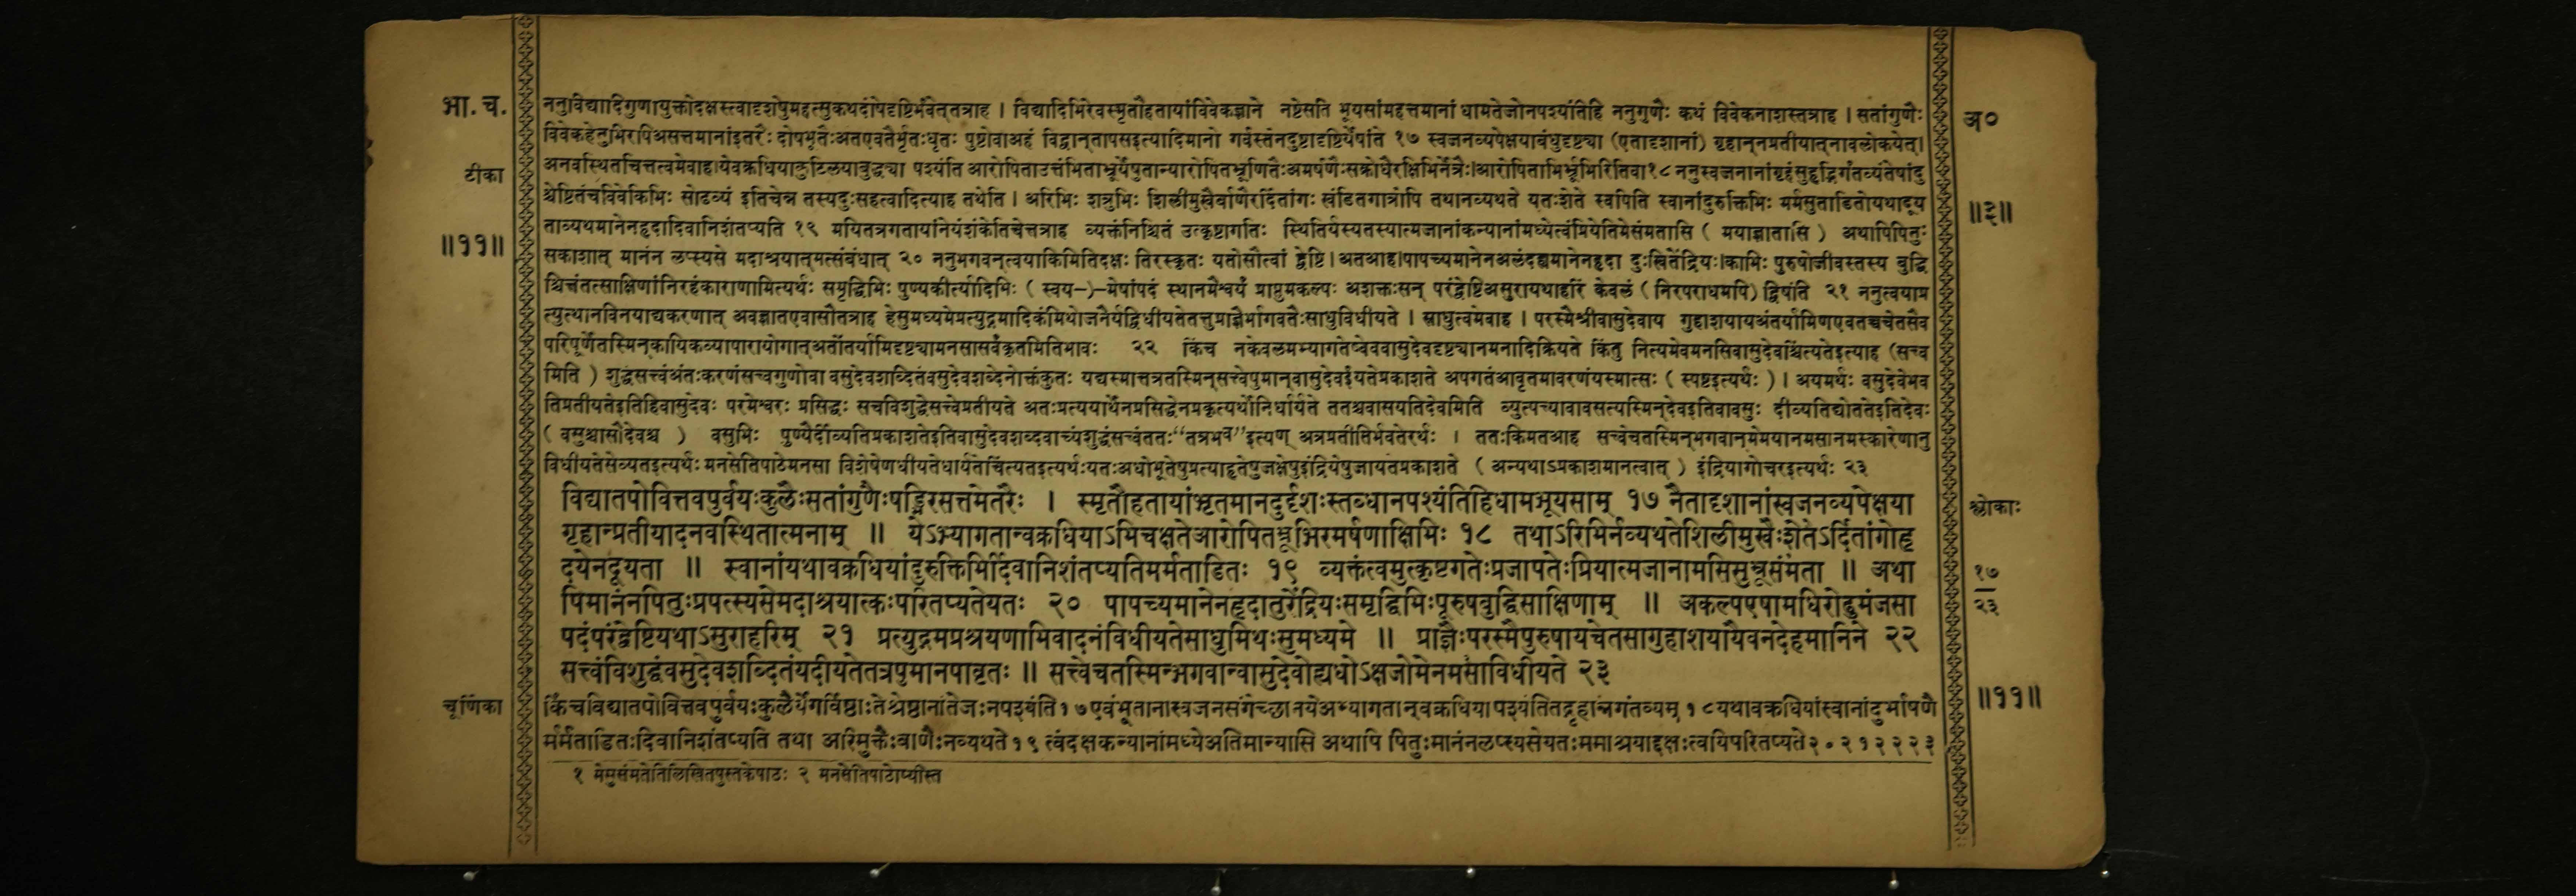 भा. च.
ननुविद्यादिगुणायुक्तोदक्षस्त्वादृशेषुमहत्सुकथदोषेदृष्टिर्भवेत्तत्राह । विद्यादिभिरेवस्मृतौहतायांविवेकज्ञाने नष्टेसति भूयसांमहत्तमानां धामतेजोनपश्यंतिहि ननुगुणैः कथं विवेकनाशस्तत्राह । सतांगुणैः
अ०
विवेकहेतुभिरपिअसत्तमानांइतरैः दोषभूतैःअतएवतैर्भृतःधृतः पुष्टोवाअहं विद्वान्तापसइत्यादिमानो गर्वस्तेनदुष्टादृष्टिर्येषांते १७ स्वजनव्यपेक्षयाबंधुदृष्ट्या (एतादृशानां) गृहान्नप्रतीयात्नावलोकयेत्।
टीका
अनवस्थितचित्तत्वमेवाह।येवक्रधियाकुटिलयाबुद्ध्या पश्यंति आरोपिताउत्तंभिताभ्रूर्येषुतान्यारोपितभ्रूणितैःअमर्षणैःसक्रोधैरक्षिभिर्नेत्रैः।आरोपिताभिर्भ्रूभिरितिवा१८ ननुस्वजनानांगृहंसुहृद्भिर्गंतव्यंतेषांदु
श्चेष्टितंचविवेकिभिः सोढव्यं इतिचेन्न तस्यदुःसहत्वादित्याह तथेति । अरिभिः शत्रुभिः शिलीमुखैर्बाणैरर्दितांगः खंडितगात्रोपि तथानव्यथते यतःशेते स्वपिति स्वानांदुरुक्तिभिः मर्मसुताडितोयथादूय
॥३॥
ताव्यथमानेनहृदादिवानिशंतप्यति १९ मयितत्रगतायांनेयंशंकेतिचेत्तत्राह व्यक्तंनिश्चितं उत्कृष्टागतिः स्थितिर्यस्यतस्यात्मजानांकन्यानांमध्येत्वंप्रियेतिमेसंमतासि ( मयाज्ञातासि ) अथापिपितुः
॥११॥
सकाशात् मानंन लप्स्यसे मदाश्रयात्मत्संबंधात् २० ननुभगवन्त्वयाकिमितिदक्षः तिरस्कृतः यतोसौत्वां द्वेष्टि। अतआह।पापच्यमानेनअलंदह्यमानेनहृदा दुःखितेंद्रियः।काभिः पुरुषोजीवस्तस्य बुद्धि
श्चित्तंतत्साक्षिणांनिरहंकाराणामित्यर्थः समृद्धिभिः पुण्यकीर्त्यादिभिः ( स्वय-)-मेषांपदं स्थानमैश्वर्यं प्राप्तुमकल्पः अशक्तःसन् परंद्वेष्टिअसुरायथाहरिं केवलं (निरपराधमपि) द्विषंति २१ ननुत्वयाप्र
त्युत्थानविनयाद्यकरणात् अवज्ञातएवासौतत्राह हेसुमध्यमेप्रत्युद्गमादिकंमिथोजनैर्यद्विधीयतेतत्तुप्राज्ञैर्भागवतैःसाधुविधीयते । साधुत्वमेवाह । परस्मैश्रीवासुदेवाय गुहाशयायअंतर्यामिणएवतच्चचेतसैव
परिपूर्णेतस्मिन्कायिकव्यापारायोगात्अतोंतर्यामिदृष्ट्यामनसासर्वंकृतमितिभावः २२ किंच नकेवलमभ्यागतेष्वेववासुदेवदृष्ट्यानमनादिक्रियते किंतु नित्यमेवमनसिवासुदेवश्चिंत्यतेइत्याह (सत्त्व
मिति ) शुद्धंसत्त्वंअंतःकरणंसत्त्वगुणोवा वसुदेवशब्दितंवसुदेवशब्देनोक्तंकुतः यद्यस्मात्तत्रतस्मिन्सत्त्वेपुमान्वासुदेवईयतेप्रकाशते अपगतंआवृतमावरणंयस्मात्सः ( स्पष्टइत्यर्थः ) । अयमर्थः वसुदेवेभव
तिप्रतीयतेइतिहिवासुदेवः परमेश्वरः प्रसिद्धः सचविशुद्धेसत्त्वेप्रतीयते अतःप्रत्ययार्थेनप्रसिद्धेनप्रकृत्यर्थोनिर्धार्यते ततश्चवासयतिदेवमिति व्युत्पत्त्यावावसत्यस्मिन्देवइतिवावसुः दीव्यतिद्योततेइतिदेवः
( वसुश्चासौदेवश्च ) वसुभिः पुण्यैर्दीव्यतिप्रकाशतेइतिवासुदेवशब्दवाच्यंशुद्धंसत्त्वंततः“तत्रभव”इत्यण् अत्रप्रतीतिर्भवतेरर्थः । ततःकिमतआह सत्त्वेचतस्मिन्भगवान्मेमयानमसानमस्कारेणानु
विधीयतेसेव्यतइत्यर्थः मनसेतिपाठेमनसा विशेषेणधीयतेधार्यतेचिंत्यतइत्यर्थःयतःअधोभूतेषुप्रत्याहृतेषुअक्षेषुइंद्रियेषुजायतेप्रकाशते ( अन्यथाऽप्रकाशमानत्वात् ) इंद्रियागोचरइत्यर्थः २३
विद्यातपोवित्तवपुर्वयःकुलैःसतांगुणैःषड्भिरसत्तमेतरैः । स्मृतौहतायांभृतमानदुर्दृशःस्तब्धानपश्यंतिहिधामभूयसाम् १७ नैतादृशानांस्वजनव्यपेक्षया
श्लोकाः
गृहान्प्रतीयादनवस्थितात्मनाम् ॥ येऽभ्यागतान्वक्रधियाऽभिचक्षतेआरोपितभ्रूभिरमर्षणाक्षिभिः १८ तथाऽरिभिर्नव्यथतेशिलीमुखैःशेतेऽर्दितांगोहृ
दयेनदूयता ॥ स्वानांयथावक्रधियांदुरुक्तिभिर्दिवानिशंतप्यतिमर्मताडितः १९ व्यक्तंत्वमुत्कृष्टगतेःप्रजापतेःप्रियात्मजानामसिसुभ्रूसंमता ॥ अथा
१७
पिमानंनपितुःप्रपत्स्यसेमदाश्रयात्कःपरितप्यतेयतः २० पापच्यमानेनहृदातुरेंद्रियःसमृद्धिभिःपूरुषबुद्धिसाक्षिणाम् ॥ अकल्पएषामधिरोढुमंजसा
२३
पदंपरंद्वेष्टियथाऽसुराहरिम् २१ प्रत्युद्गमप्रश्रयणाभिवादनंविधीयतेसाधुमिथःसुमध्यमे ॥ प्राज्ञैःपरस्मैपुरुषायचेतसागुहाशयायैवनदेहमानिने २२
सत्त्वंविशुद्धंवसुदेवशब्दितंयदीयतेतत्रपुमानपावृतः ॥ सत्त्वेचतस्मिन्भगवान्वासुदेवोह्यधोऽक्षजोमेनमसाविधीयते २३
चूर्णिका
किंचविद्यातपोवित्तवपुर्वयःकुलैर्येगर्विष्ठाःतेश्रेष्ठानांतेजःनपश्यंति१७एवंभूतानास्वजनसंगेच्छानयेअभ्यागतान्वक्रधियापश्यंतितद्गृहान्नगंतव्यम्१८यथावक्रधियांस्वानांदुर्भाषणै
॥११॥
र्मर्मताडितःदिवानिशंतप्यति तथा अरिमुक्तैःबाणैःनव्यथते१९ त्वंदक्षकन्यानांमध्येअतिमान्यासि अथापि पितुःमानंनलप्स्यसेयतःममाश्रयाद्दक्षःत्वयिपरितप्यते२०२१२२२३
१ मेसुसंमतेतिलिखितपुस्तकेपाठः २ मनसेतिपाठोप्यस्ति